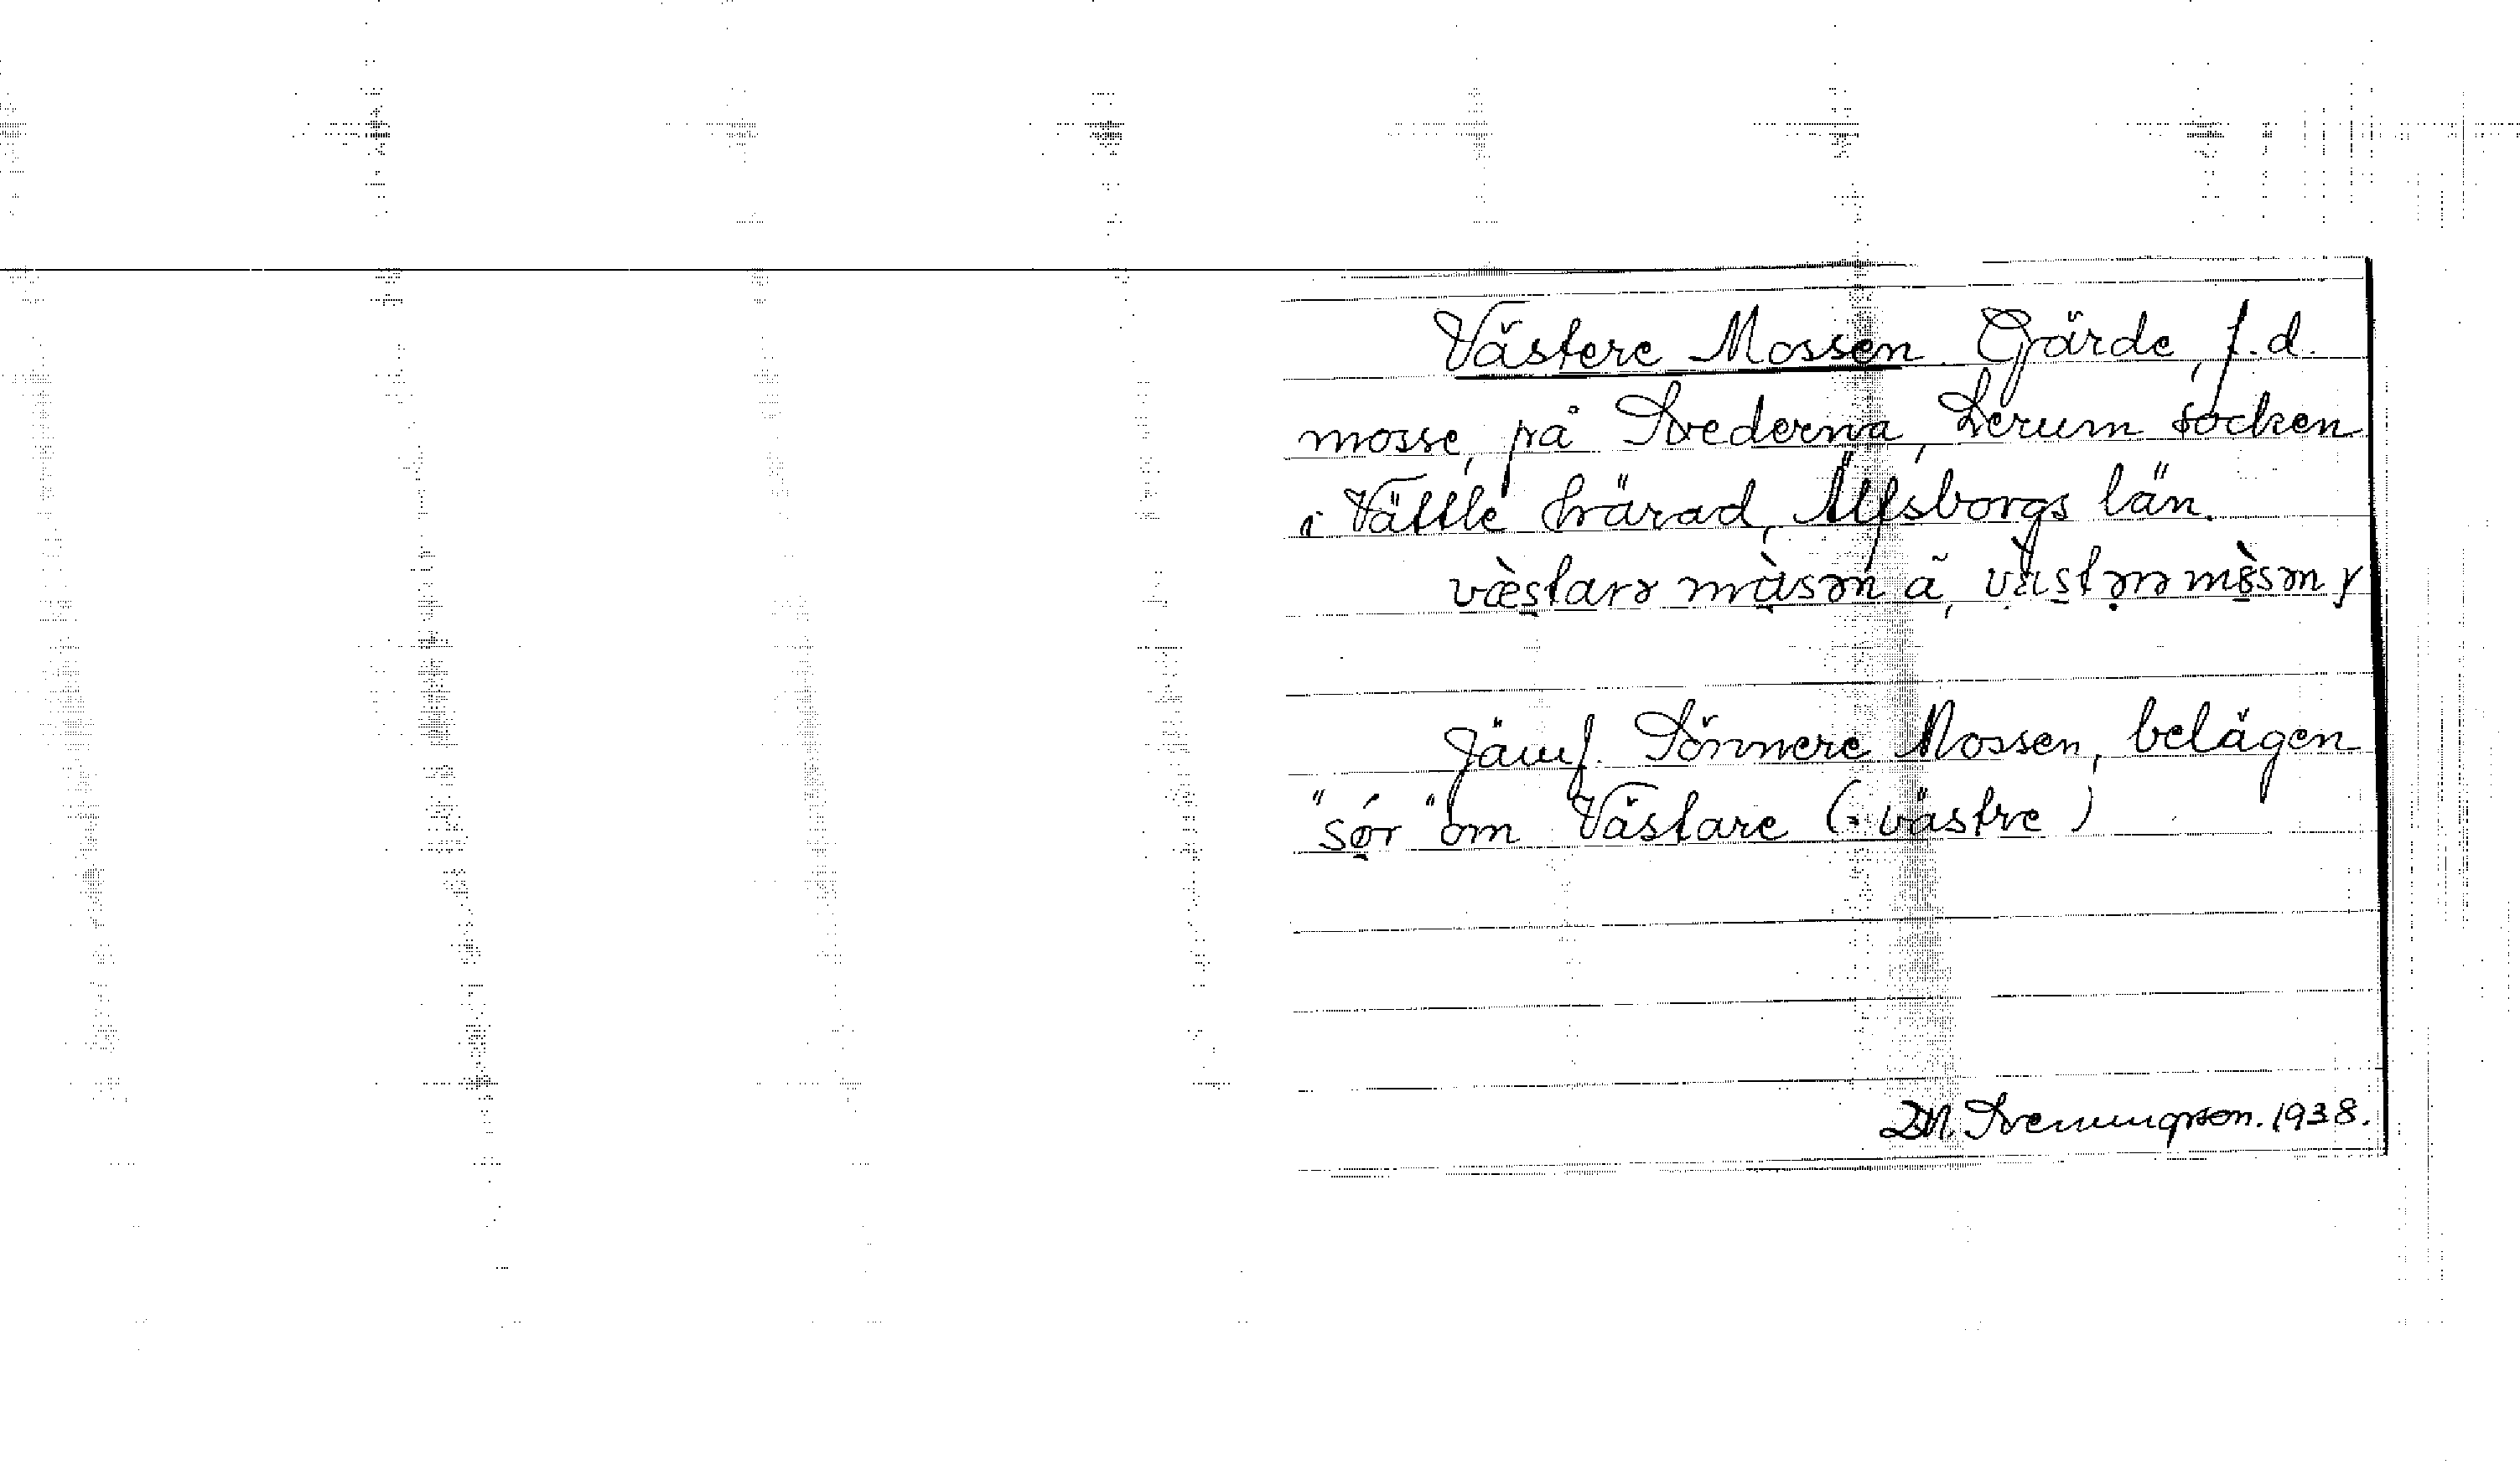 Västere Mossen. Gärde, f.d.
mosse, på Svederna, Lerum socken
i Vättle härad, Älfsborgs län.
væstarə màsən ä, vàstərn mòsən y
Jämf. Sönnere Mossen, belägen
"sør" om Västare (: västre)
D.N. Svenungsson. 1938.